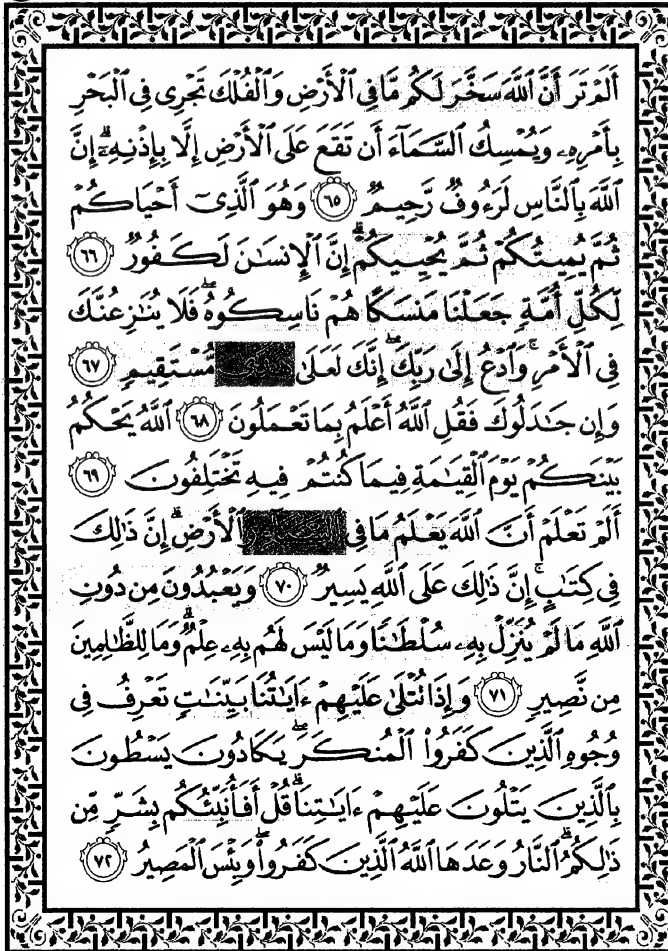 أَلَمْ تَرَ أَنَّ ٱللَّهَ سَخَّرَ لَكُم مَّا فِى ٱلْأَرْضِ وَٱلْفُلْكَ تَجْرِى فِى ٱلْبَحْرِ
بِأَمْرِهِۦ وَيُمْسِكُ ٱلسَّمَآءَ أَن تَقَعَ عَلَى ٱلْأَرْضِ إِلَّا بِإِذْنِهِۦٓ ۗ إِنَّ
ٱللَّهَ بِٱلنَّاسِ لَرَءُوفٌ رَّحِيمٌ ٦٥ وَهُوَ ٱلَّذِىٓ أَحْيَاكُمْ
ثُمَّ يُمِيتُكُمْ ثُمَّ يُحْيِيكُمْ ۗ إِنَّ ٱلْإِنسَٰنَ لَكَفُورٌ ٦٦
لِّكُلِّ أُمَّةٍ جَعَلْنَا مَنسَكًا هُمْ نَاسِكُوهُ ۖ فَلَا يُنَٰزِعُنَّكَ
فِى ٱلْأَمْرِ ۚ وَٱدْعُ إِلَىٰ رَبِّكَ ۖ إِنَّكَ لَعَلَىٰ هُدًى مُّسْتَقِيمٍ ٦٧
وَإِن جَٰدَلُوكَ فَقُلِ ٱللَّهُ أَعْلَمُ بِمَا تَعْمَلُونَ ٦٨ ٱللَّهُ يَحْكُمُ
بَيْنَكُمْ يَوْمَ ٱلْقِيَٰمَةِ فِيمَا كُنتُمْ فِيهِ تَخْتَلِفُونَ ٦٩
أَلَمْ تَعْلَمْ أَنَّ ٱللَّهَ يَعْلَمُ مَا فِى ٱلْأَرْضِ ۗ إِنَّ ذَٰلِكَ
فِى كِتَٰبٍ ۚ إِنَّ ذَٰلِكَ عَلَى ٱللَّهِ يَسِيرٌ ٧٠ وَيَعْبُدُونَ مِن دُونِ
ٱللَّهِ مَا لَمْ يُنَزِّلْ بِهِۦ سُلْطَٰنًا وَمَا لَيْسَ لَهُم بِهِۦ عِلْمٌ ۗ وَمَا لِلظَّٰلِمِينَ
مِن نَّصِيرٍ ٧١ وَإِذَا تُتْلَىٰ عَلَيْهِمْ ءَايَٰتُنَا بَيِّنَٰتٍ تَعْرِفُ فِى
وُجُوهِ ٱلَّذِينَ كَفَرُوا۟ ٱلْمُنكَرَ ۖ يَكَادُونَ يَسْطُونَ
بِٱلَّذِينَ يَتْلُونَ عَلَيْهِمْ ءَايَٰتِنَا ۗ قُلْ أَفَأُنَبِّئُكُم بِشَرٍّ مِّن
ذَٰلِكُمُ ۗ ٱلنَّارُ وَعَدَهَا ٱللَّهُ ٱلَّذِينَ كَفَرُوا۟ ۖ وَبِئْسَ ٱلْمَصِيرُ ٧٢